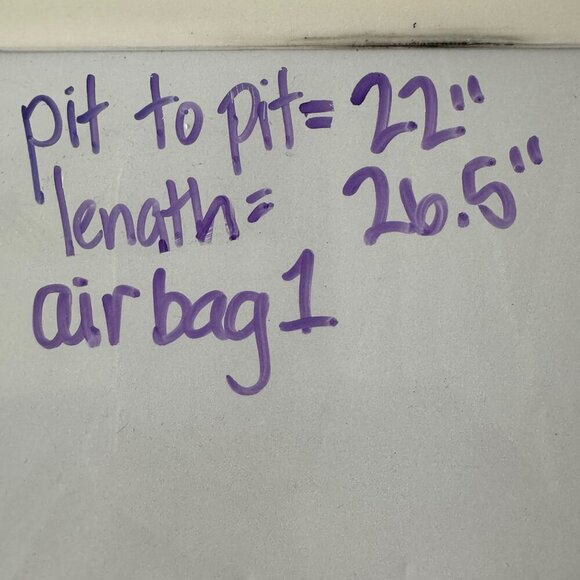 pit to pit= 22"
length= 26.5"
airbag1